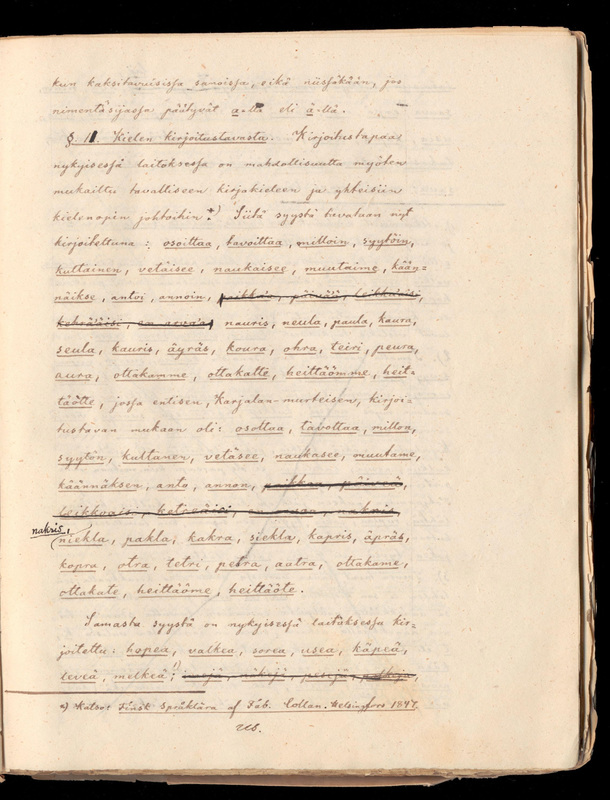 kun kaksitavuisissa sanoissa, eikä niissäkään, jos
nimentäsijassa päätyvät a-lla eli ä-llä.
§. 11. Kielen kirjoitustavasta. Kirjoitustapaa
nykyisessä laitoksessa on mahdollisuutta myöten
mukailtu tavalliseen kirjakieleen ja yhteisiin
kielenopin johtoihin *) Siitä syystä tavataan nyt
kirjoitettuna: osoittaa, tavoittaa, milloin, syytöin,
kultainen, vetäisee, naukaisee, muutaime, kään=
näikse, antoi, annoin, poikkoa, päivää, leikkaisi,
kehrääisi, en arvaa, nauris, neula, paula, kaura,
seula, kauris, äyräs, koura, ohra, teiri, peura,
aura, ottakamme, ottakatte, heittäömme, heit=
täötte, jossa entisen, Karjalan-murteisen, kirjoi=
tustavan mukaan oli: osottaa, tavottaa, milloa,
syytön, kultanen, vetäsee, naukasee, muutame,
käännäksen, anto, annon, poikkoa, päiveä,
leikkoais, ketreäisi, en arvoa, nakris,
nakris,
niekla, pakla, kakra, siekla, kapris, äpräs,
kopra, otra, tetri, petra, aatra, ottakame,
ottakate, heittäöme, heittäöte.
Samasta syystä on nykyisessä laitoksessa kir=
joitettu: hopea, valkea, sorea, usea, käpeä,
leveä, melkeä;
*) Katso: Finsk Språklära af Fab. Collan. Helsingfors 1847.